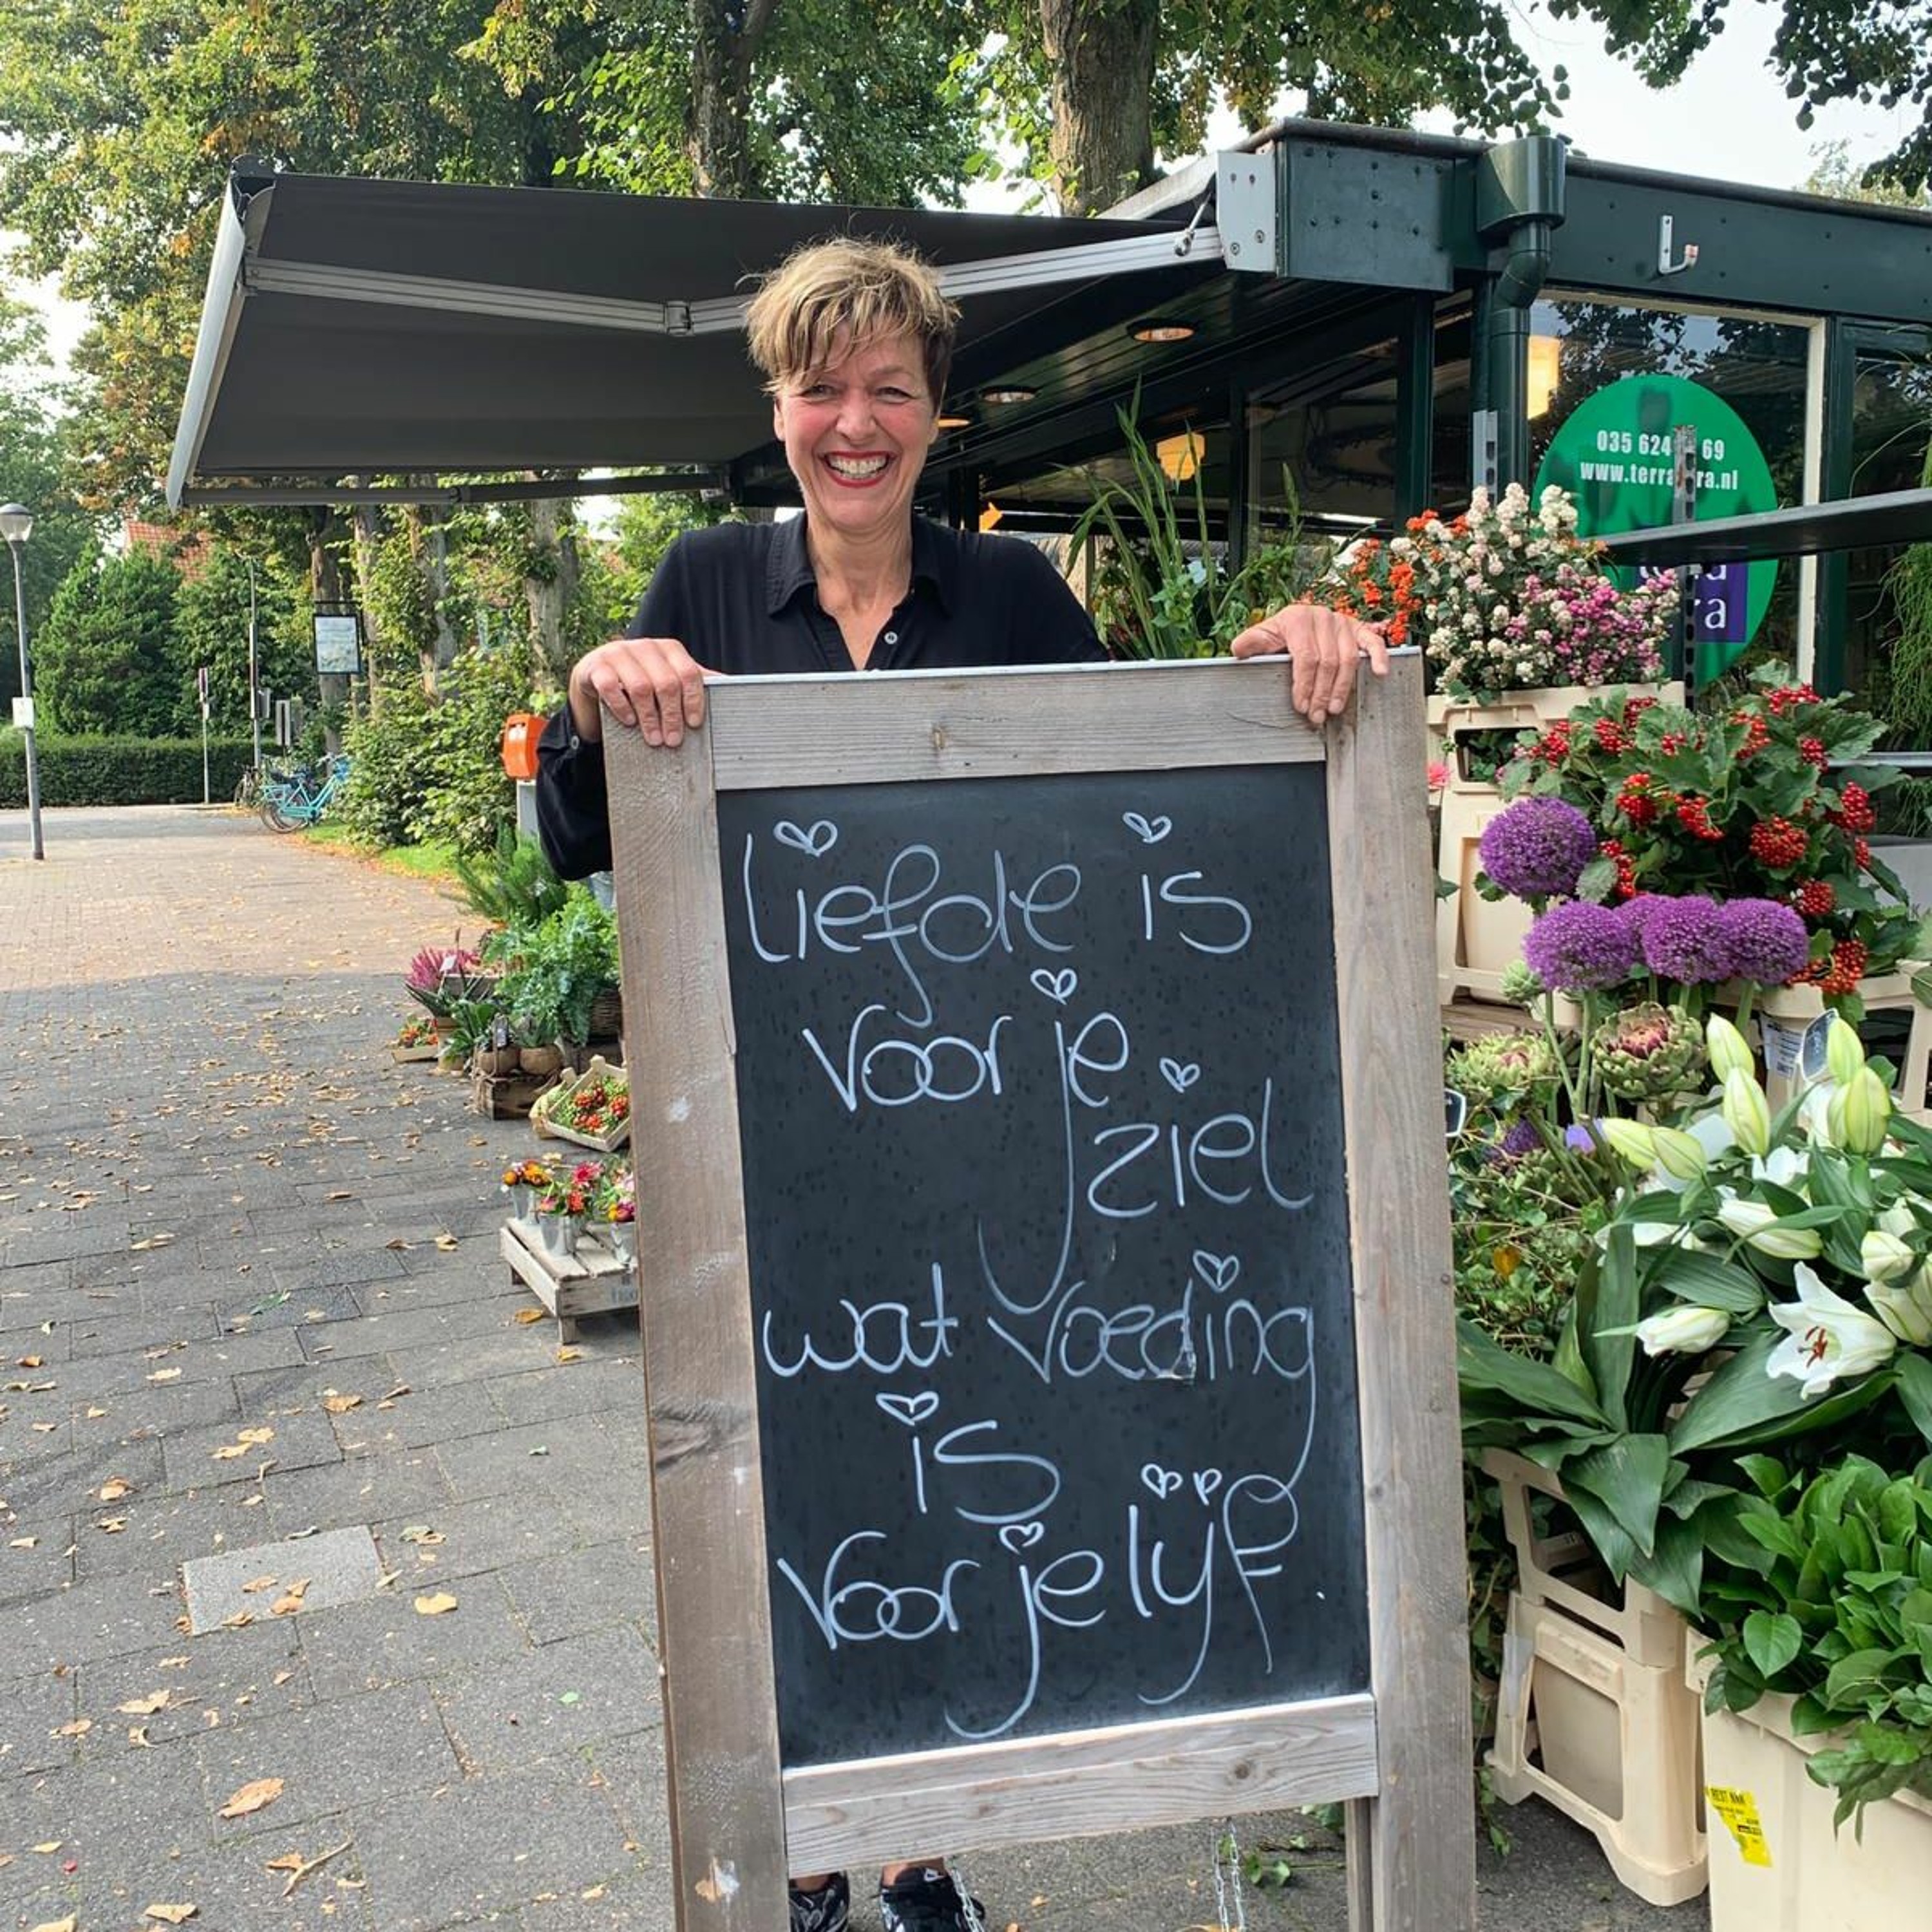 liefde is
voor je
ziel
wat voeding
is
voor je lijf.
035 624 69
www.terra ra.nl
ra